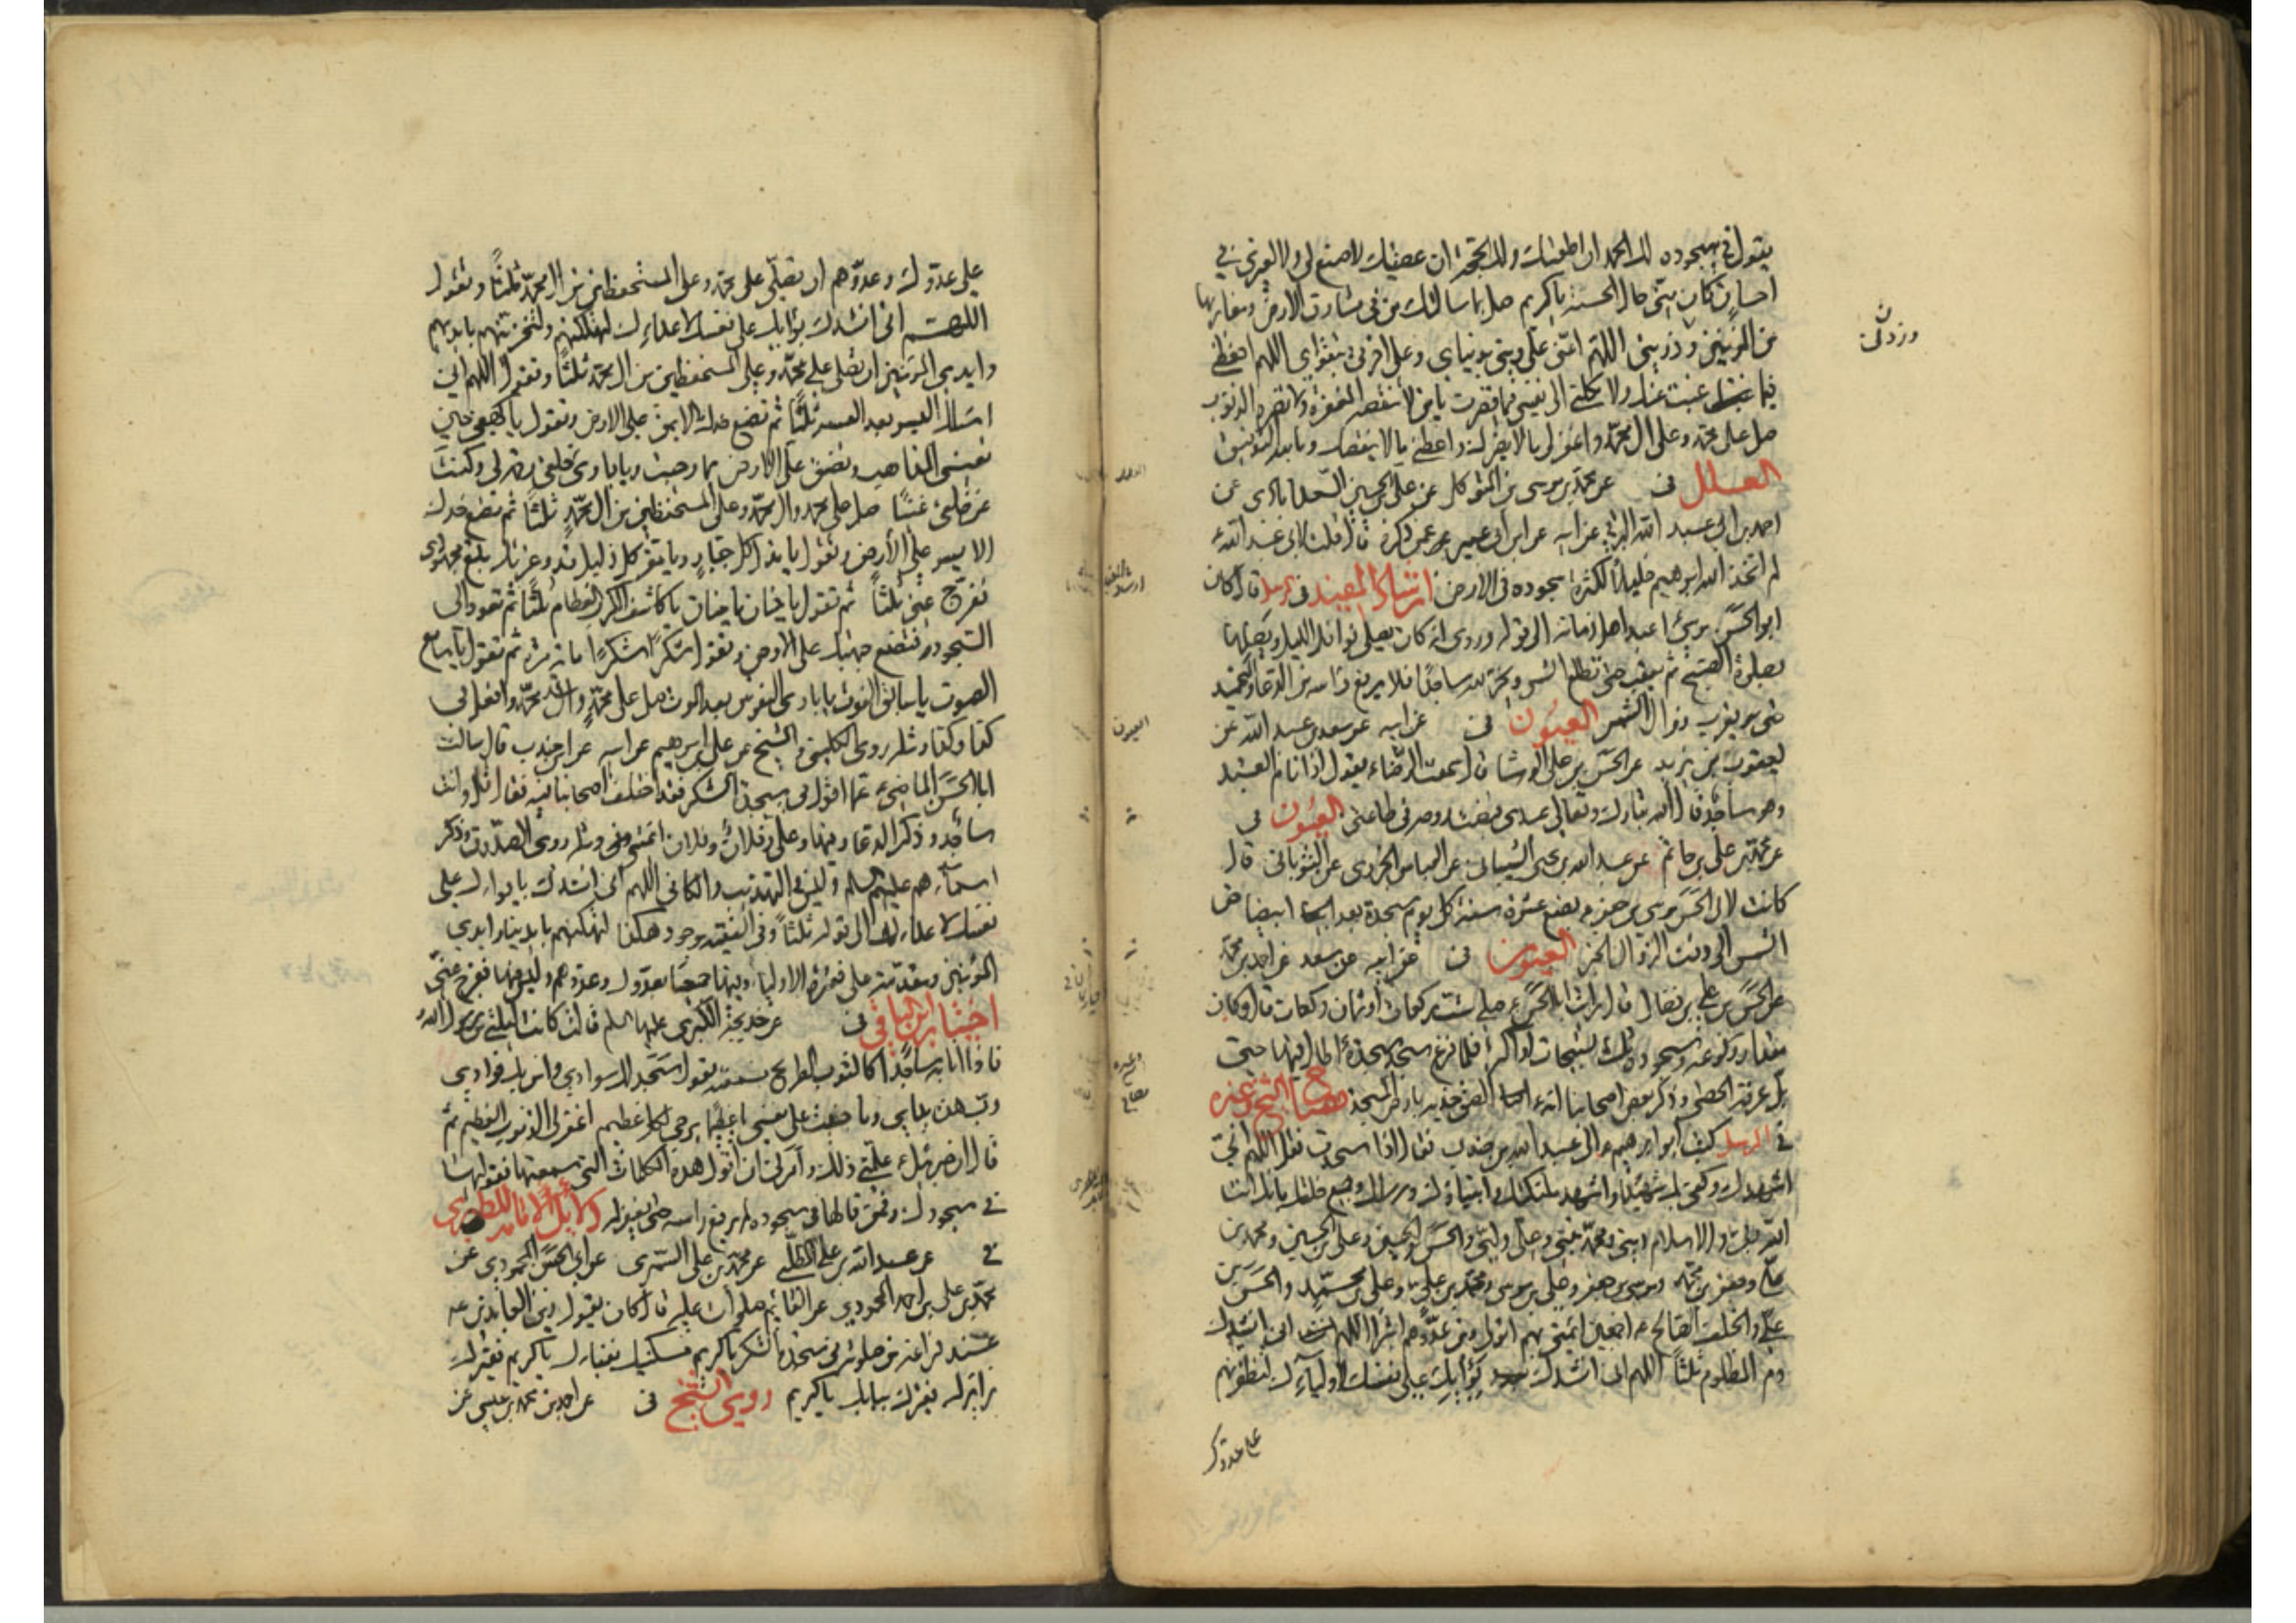 يقول في سجوده لك الحمد ان اطعتك ولك الحجة ان عصيتك لا صنع لي ولا لغيري في
احسان كان منى حال الحسنة ياكريم صل بما سالتك من في مشارق الارض ومغاربها
من المؤمنين وذريتى اللهم اعنى على دينى بدنياى وعلى اخرتى بتقواى اللهم احفظنى
فيما غبت عنه ولا تكلنى الى نفسى فيما قصرت يا من لا تنقصه المغفرة ولا تضره الذنوب
صل على محمد وعلى ال محمد واغفر لى ما لا يضرك واعطنى ما لا ينقصك وبالله التوفيق
العلل فى عن محمد بن موسى بن المتوكل عن على بن الحسين السعدابادى عن
احمد بن ابى عبد الله البرقى عن ابيه عن ابن ابى عمير عمن ذكره قال قلت لابى عبد الله ع
لم اتخذ الله ابرهيم خليلا لكثرة سجوده فى الارض ارشاد المفيد فى مرسلا قال كان
ابو الحسن موسى ع اعبد اهل زمانه الى قوله وروى انه كان يصلى نوافل الليل ويصلها
بصلوة الصبح ثم يعقب حتى تطلع الشمس ويخر لله ساجدا فلا يرفع راسه من الدعا والتحميد
حتى يقرب زوال الشمس العيون فى عن ابيه عن سعد بن عبد الله عن
يعقوب بن يزيد عن الحسن بن على الوشا قال سمعت الرضا ع يقول اذا نام العبد
وهو ساجد قال الله تبارك وتعالى عبدى قبضت روحه فى طاعتى العيون فى
عن محمد بن على بن حاتم عن عبد الله بن بحر الشيبانى عن العباس الجزرى عن الثوبانى قال
كانت لابى الحسن موسى بن جعفر ع بضع عشرة سنة كل يوم سجدة بعد ابيضاض
الشمس الى وقت الزوال الخبر العيون فى عن ابيه عن سعد عن احمد بن محمد
عن الحسن بن على بن فضال قال رايت ابا الحسن ع صلى ست ركعات او ثمان ركعات قال وكان
مقدار ركوعه وسجوده ثلث تسبيحات او اكثر فلما فرغ سجد سجدة اطال فيها حتى
بل عرقه الحصى وذكر بعض اصحابنا انه الصق خديه بارض المسجد مصباح الشيخ وغيره
فى المرسل كتب ابو ابرهيم ع الى عبد الله بن جندب فقال اذا سجدت فقل اللهم انى
اشهدك وكفى بك شهيدا واشهد ملئكتك وانبيائك ورسلك وجميع خلقك بانك انت
الله ربى والاسلام دينى ومحمد نبيى وعلى وليى والحسن والحسين وعلى بن الحسين ومحمد بن
على وجعفر بن محمد وموسى بن جعفر وعلى بن موسى ومحمد بن على وعلى بن محمد والحسن بن
على والخلف الصالح ع اجمعين ائمتى بهم اتولى ومن عدوهم اتبرا اللهم انى انشدك
دم المظلوم ثلثا اللهم انى انشدك بوايك على نفسك لاوليائك لتظفرنهم
على عدوك
وزدنى
على عدوك وعدوهم ان تصلى على محمد وعلى المستحفظين من ال محمد ثلثا وتقول
اللهم انى انشدك بوايك على نفسك لاعدائك لتهلكنهم ولتخزينهم بايديهم
وايدى المؤمنين ان تصلى على محمد وعلى المستحفظين من ال محمد ثلثا وتقول اللهم انى
اسئلك اليسر بعد العسر ثلثا ثم تضع خدك الايمن على الارض وتقول يا كهفى حين
تعيينى المذاهب وتضيق على الارض بما رحبت ويا بارئ خلقى رحمة لى وكنت
عن خلقى غنيا صل على محمد وال محمد وعلى المستحفظين من ال محمد ثلثا ثم تضع خدك
الايسر على الارض وتقول يا مذل كل جبار ويا معز كل ذليل قد وعزتك بلغ مجهودى
ففرج عنى ثلثا ثم تقول يا حنان يا منان يا كاشف الكرب العظام ثلثا ثم تعود الى
السجود فتضع جبهتك على الارض وتقول شكرا شكرا مائة مرة ثم تقول يا سامع
الصوت يا سابق الفوت يا بارئ النفوس بعد الموت صل على محمد وال محمد وافعل بى
كذا وكذا ومثله روى الكلينى والشيخ عن على بن ابرهيم عن ابيه عن ابن جندب قال سالت
ابا الحسن الماضى ع عما اقول فى سجدة الشكر فقد اختلف اصحابنا فيه فقال قل وانت
ساجد وذكر الدعا وفيها وعلى وفلان وفلان ائمتى ومثله روى الصدوق وذكر
اسمائهم عليهم السلم وليس فى التهذيب والكافى اللهم انى انشدك بايوائك على
نفسك لاعدائك الى قوله ثلثا وفى الفقيه موجود هكذا لتهلكنهم بايدينا وايدى
المؤمنين وبعد متنه على فقرة الاوليا وفيها جميعا بعدوك وعدوهم وليس فيها ففرج عنى
اختيار ابن الباقى فى عن خديجة الكبرى عليها السلم قالت كانت ليلتى من رسول الله ص
فاذا انا به ساجدا كالثوب الطريح سمعته يقول سجد لك سوادى وامن بك فوادى
رب هذه يداى وما جنيت على نفسى يا عظيما يرجى لكل عظيم اغفر لى الذنوب العظيم ثم
قال ان جبرئيل ع علمنى ذلك وامرنى ان اقول هذه الكلمات التى سمعتها فقوليها
فى سجودك فمن قالها فى سجوده لم يرفع راسه حتى يغفر له دلائل الامامة للطبرى
فى عن عبد الله بن على المطلبى عن محمد بن على السمرى عن ابى الحسن المحمودى عن
محمد بن على بن احمد المحمودى عن القائم صلوات الله عليه قال كان يقول زين العابدين ع
عند فراغه من صلوته فى سجدة الشكر يا كريم مسكينك بفنائك يا كريم فقيرك
زائرك حقيرك ببابك يا كريم روى الشيخ فى عن احمد بن محمد بن عيسى عن